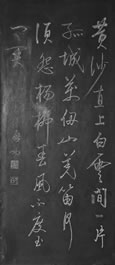 黄沙直上白雲間一片
孤城萬仞山羌笛何
須怨楊柳春風不度玉
门关